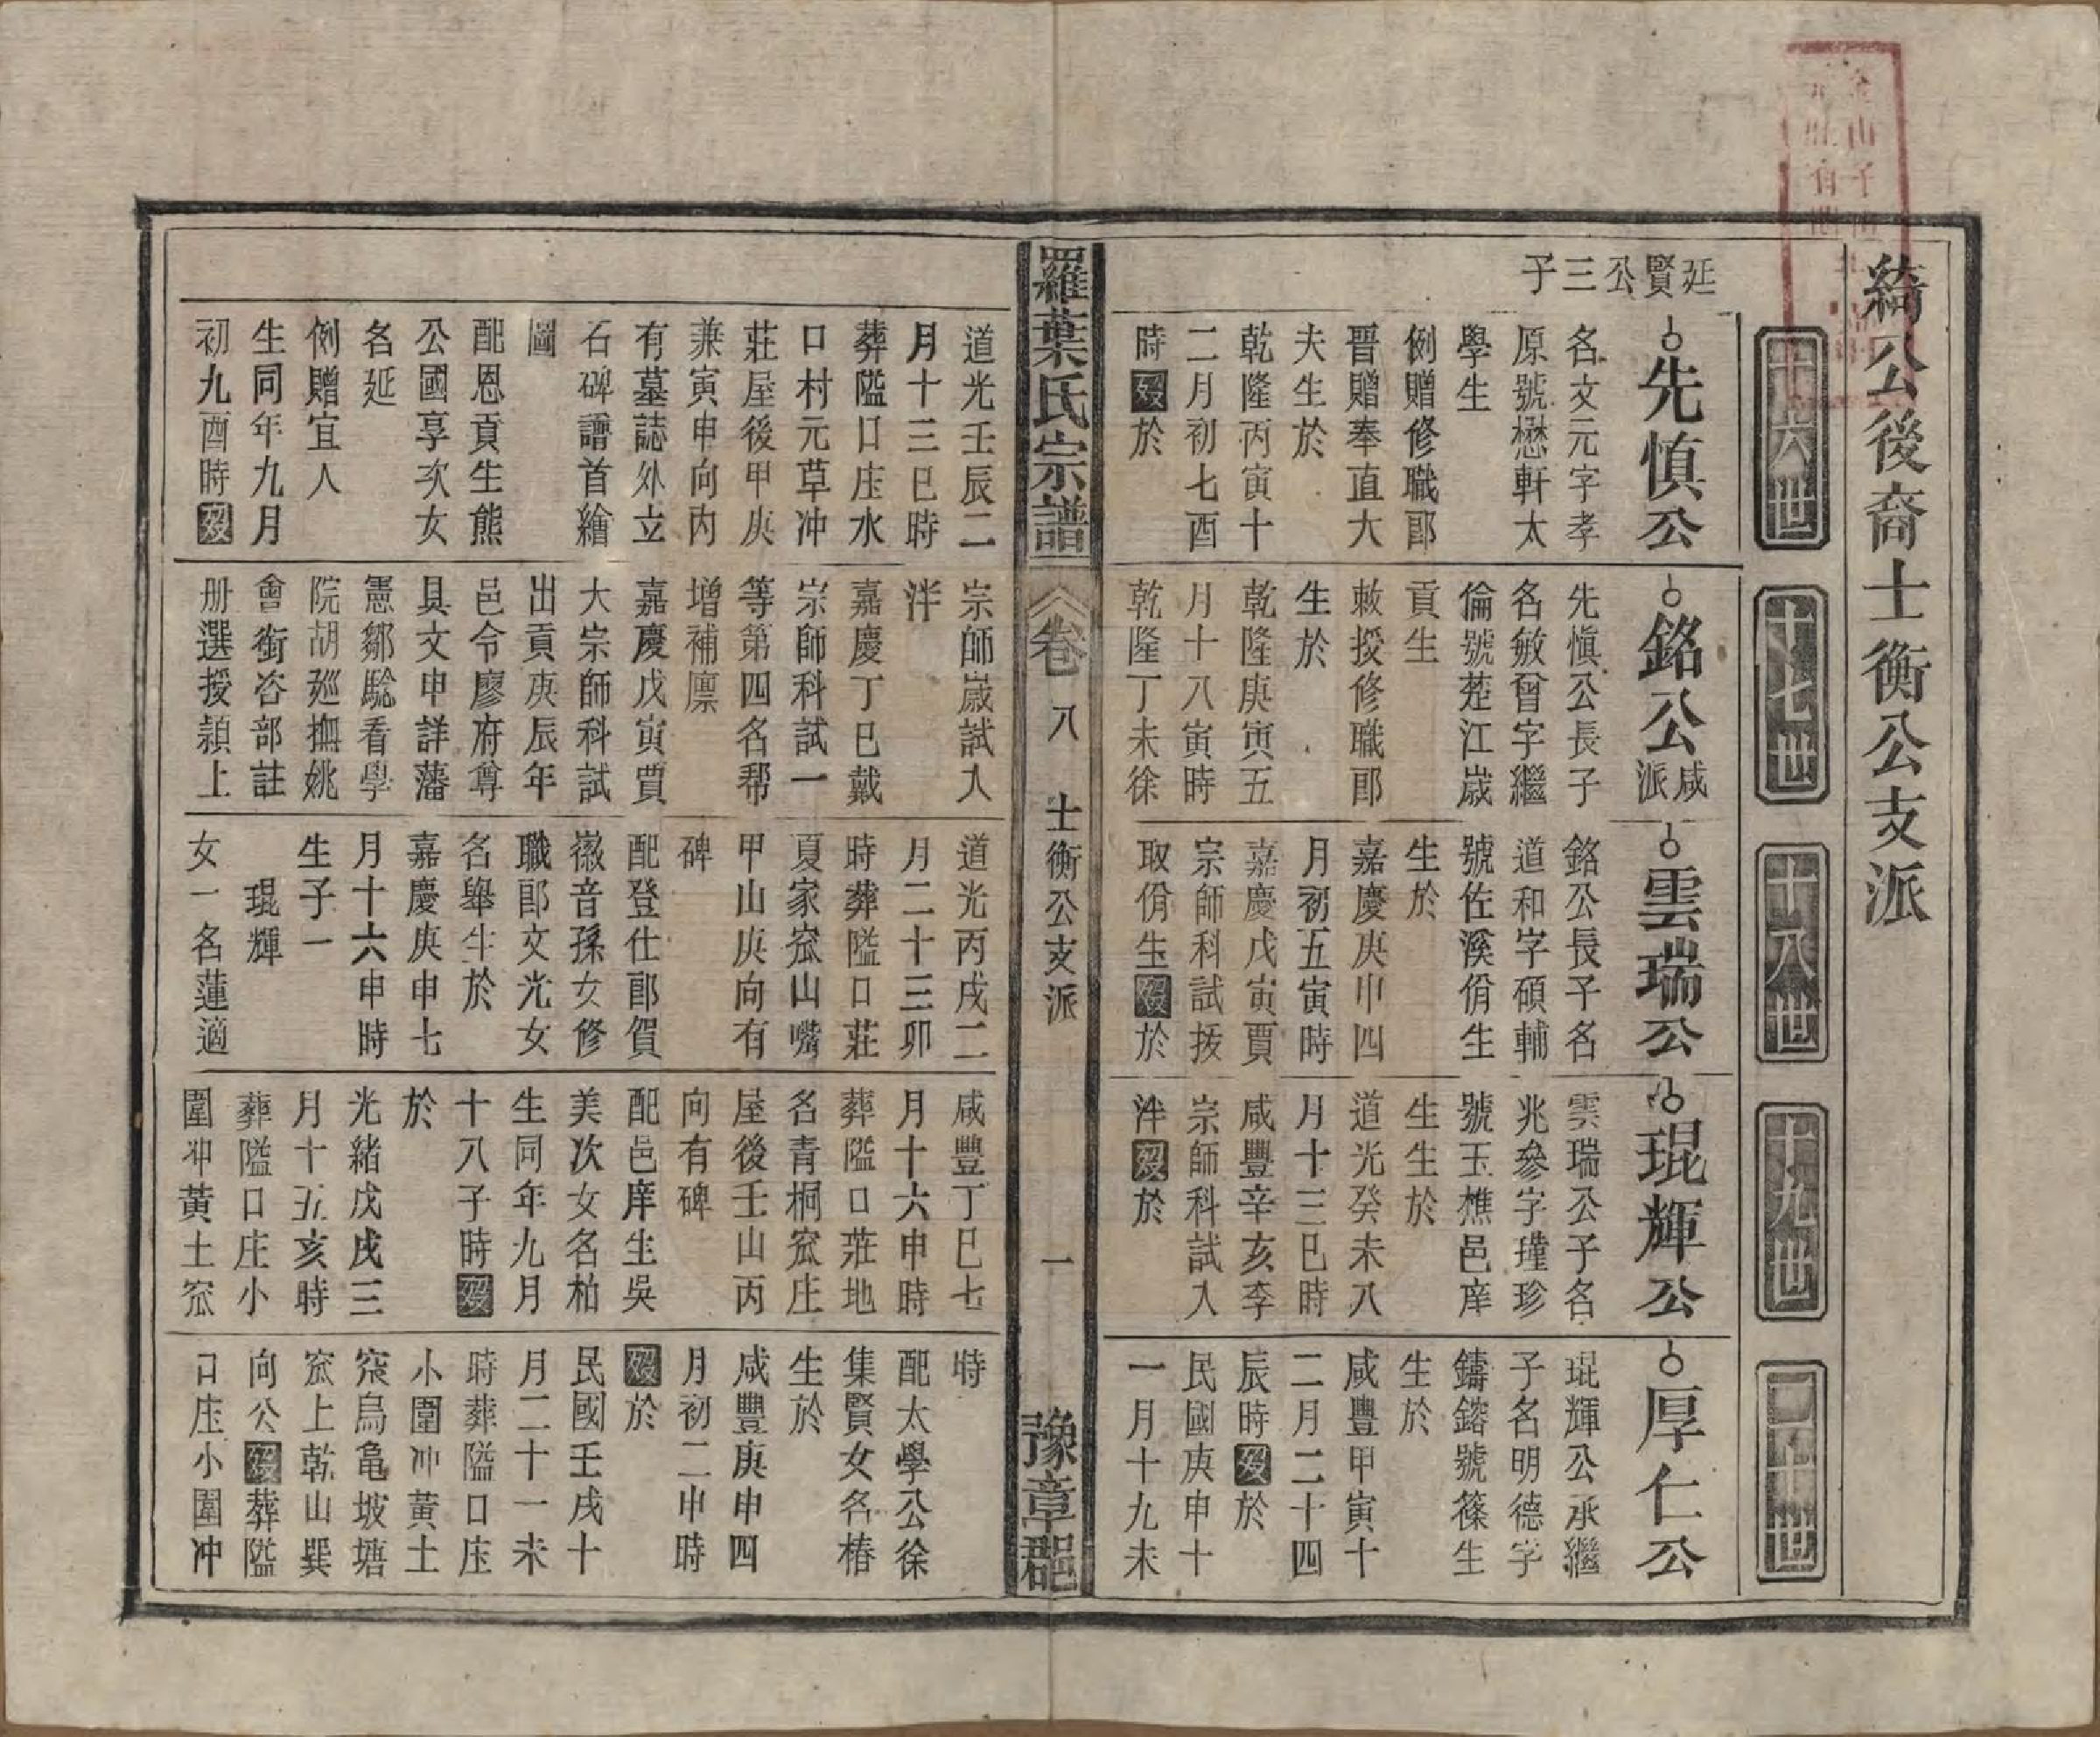 綺公後裔士衡公支派
十六世
十七世
十八世
十九世
二十世
延賢公三子
先慎公
名文元字孝
原號懋軒太
學生
例贈修職郎
晋贈奉直大
夫生於
乾隆丙寅十
二月初七酉
時歿於
道光壬辰二
月十三巳時
葬隘口庄水
口村元草冲
莊屋後甲庚
兼寅申向内
有墓誌外立
石碑譜首繪
圖
配恩貢生熊
公國享次女
名延
例贈宜人
生同年九月
初九酉時歿
銘公
咸派
先慎公長子
名敏曾字繼
倫號茬江歲
貢生
敕授修職郎
生於
乾隆庚寅五
月十八寅時
乾隆丁未徐
宗師歲試入
泮
嘉慶丁巳戴
宗師科試一
等第四名帮
增補廪
嘉慶戊寅賈
大宗師科試
出貢庚辰年
邑令廖府尊
具文申詳藩
憲鄒驗看學
院胡廵撫姚
會銜咨部註
册選授潁上
雲瑞公
銘公長子名
道和字碩輔
號佐溪佾生
生於
嘉慶庚申四
月初五寅時
嘉慶戊寅賈
宗師科試拔
取佾生歿於
道光丙戌二
月二十三卯
時葬隘口莊
夏家窊山嘴
甲山庚向有
碑
配登仕郎賀
徽音孫女修
職郎文光女
名舉生於
嘉慶庚申七
月十六申時
生子一
琨輝
女一名蓮適
琨輝公
雲瑞公子名
兆參字瑾珍
號玉樵邑庠
生生於
道光癸未八
月十三巳時
咸豐辛亥李
宗師科試入
泮歿於
咸豐丁巳七
月十六申時
葬隘口莊地
名青桐窊庄
屋後壬山丙
向有碑
配邑庠生吳
美次女名柏
生同年九月
十八子時歿
於
光緒戊戌三
月十五亥時
葬隘口庄小
圍冲黃土窊
厚仁公
琨輝公承繼
子名明德字
鑄鎔號篠生
生於
咸豐甲寅十
二月二十四
辰時歿於
民國庚申十
一月十九未
時
配太學公徐
集賢女名椿
生於
咸豐庚申四
月初二申時
歿於
民國壬戌十
月二十一未
時葬隘口庄
小圍冲黃土
窊烏龜坡塘
窊上乾山巽
向公歿葬隘
口庄小圍冲
羅葉氏宗譜
卷八
士衡公支派
一
豫章郡